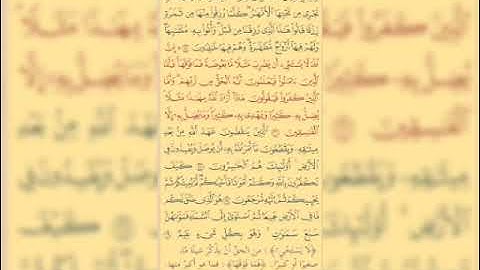 تَجْرِى مِن تَحْتِهَا ٱلْأَنْهَٰرُ كُلَّمَا رُزِقُوا۟ مِنْهَا مِن ثَمَرَةٍ
رِّزْقًا قَالُوا۟ هَٰذَا ٱلَّذِى رُزِقْنَا مِن قَبْلُ وَأُتُوا۟ بِهِۦ مُتَشَٰبِهًا
وَلَهُمْ فِيهَآ أَزْوَٰجٌ مُّطَهَّرَةٌ وَهُمْ فِيهَا خَٰلِدُونَ ۞ إِنَّ
ٱللَّهَ لَا يَسْتَحْىِۦٓ أَن يَضْرِبَ مَثَلًا مَّا بَعُوضَةً فَمَا فَوْقَهَا فَأَمَّا
ٱلَّذِينَ ءَامَنُوا۟ فَيَعْلَمُونَ أَنَّهُ ٱلْحَقُّ مِن رَّبِّهِمْ وَأَمَّا
ٱلَّذِينَ كَفَرُوا۟ فَيَقُولُونَ مَاذَآ أَرَادَ ٱللَّهُ بِهَٰذَا مَثَلًا
يُضِلُّ بِهِۦ كَثِيرًا وَيَهْدِى بِهِۦ كَثِيرًا وَمَا يُضِلُّ بِهِۦٓ إِلَّا
ٱلْفَٰسِقِينَ ٱلَّذِينَ يَنقُضُونَ عَهْدَ ٱللَّهِ مِنۢ بَعْدِ
مِيثَٰقِهِۦ وَيَقْطَعُونَ مَآ أَمَرَ ٱللَّهُ بِهِۦٓ أَن يُوصَلَ وَيُفْسِدُونَ فِى
ٱلْأَرْضِ أُو۟لَٰٓئِكَ هُمُ ٱلْخَٰسِرُونَ كَيْفَ
تَكْفُرُونَ بِٱللَّهِ وَكُنتُمْ أَمْوَٰتًا فَأَحْيَٰكُمْ ثُمَّ يُمِيتُكُمْ ثُمَّ
يُحْيِيكُمْ ثُمَّ إِلَيْهِ تُرْجَعُونَ هُوَ ٱلَّذِى خَلَقَ لَكُم
مَّا فِى ٱلْأَرْضِ جَمِيعًا ثُمَّ ٱسْتَوَىٰٓ إِلَى ٱلسَّمَآءِ فَسَوَّىٰهُنَّ
سَبْعَ سَمَٰوَٰتٍ وَهُوَ بِكُلِّ شَىْءٍ عَلِيمٌ
«لا يستحيي»: من الحق أن يذكر شيئا ما
صغيرا أو كبيرا. «فما فوقها»: فما هو أكبر منها